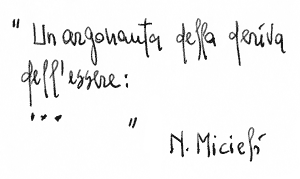 " Un argonauta della deriva
dell'essere:
... "
N. Miciefi